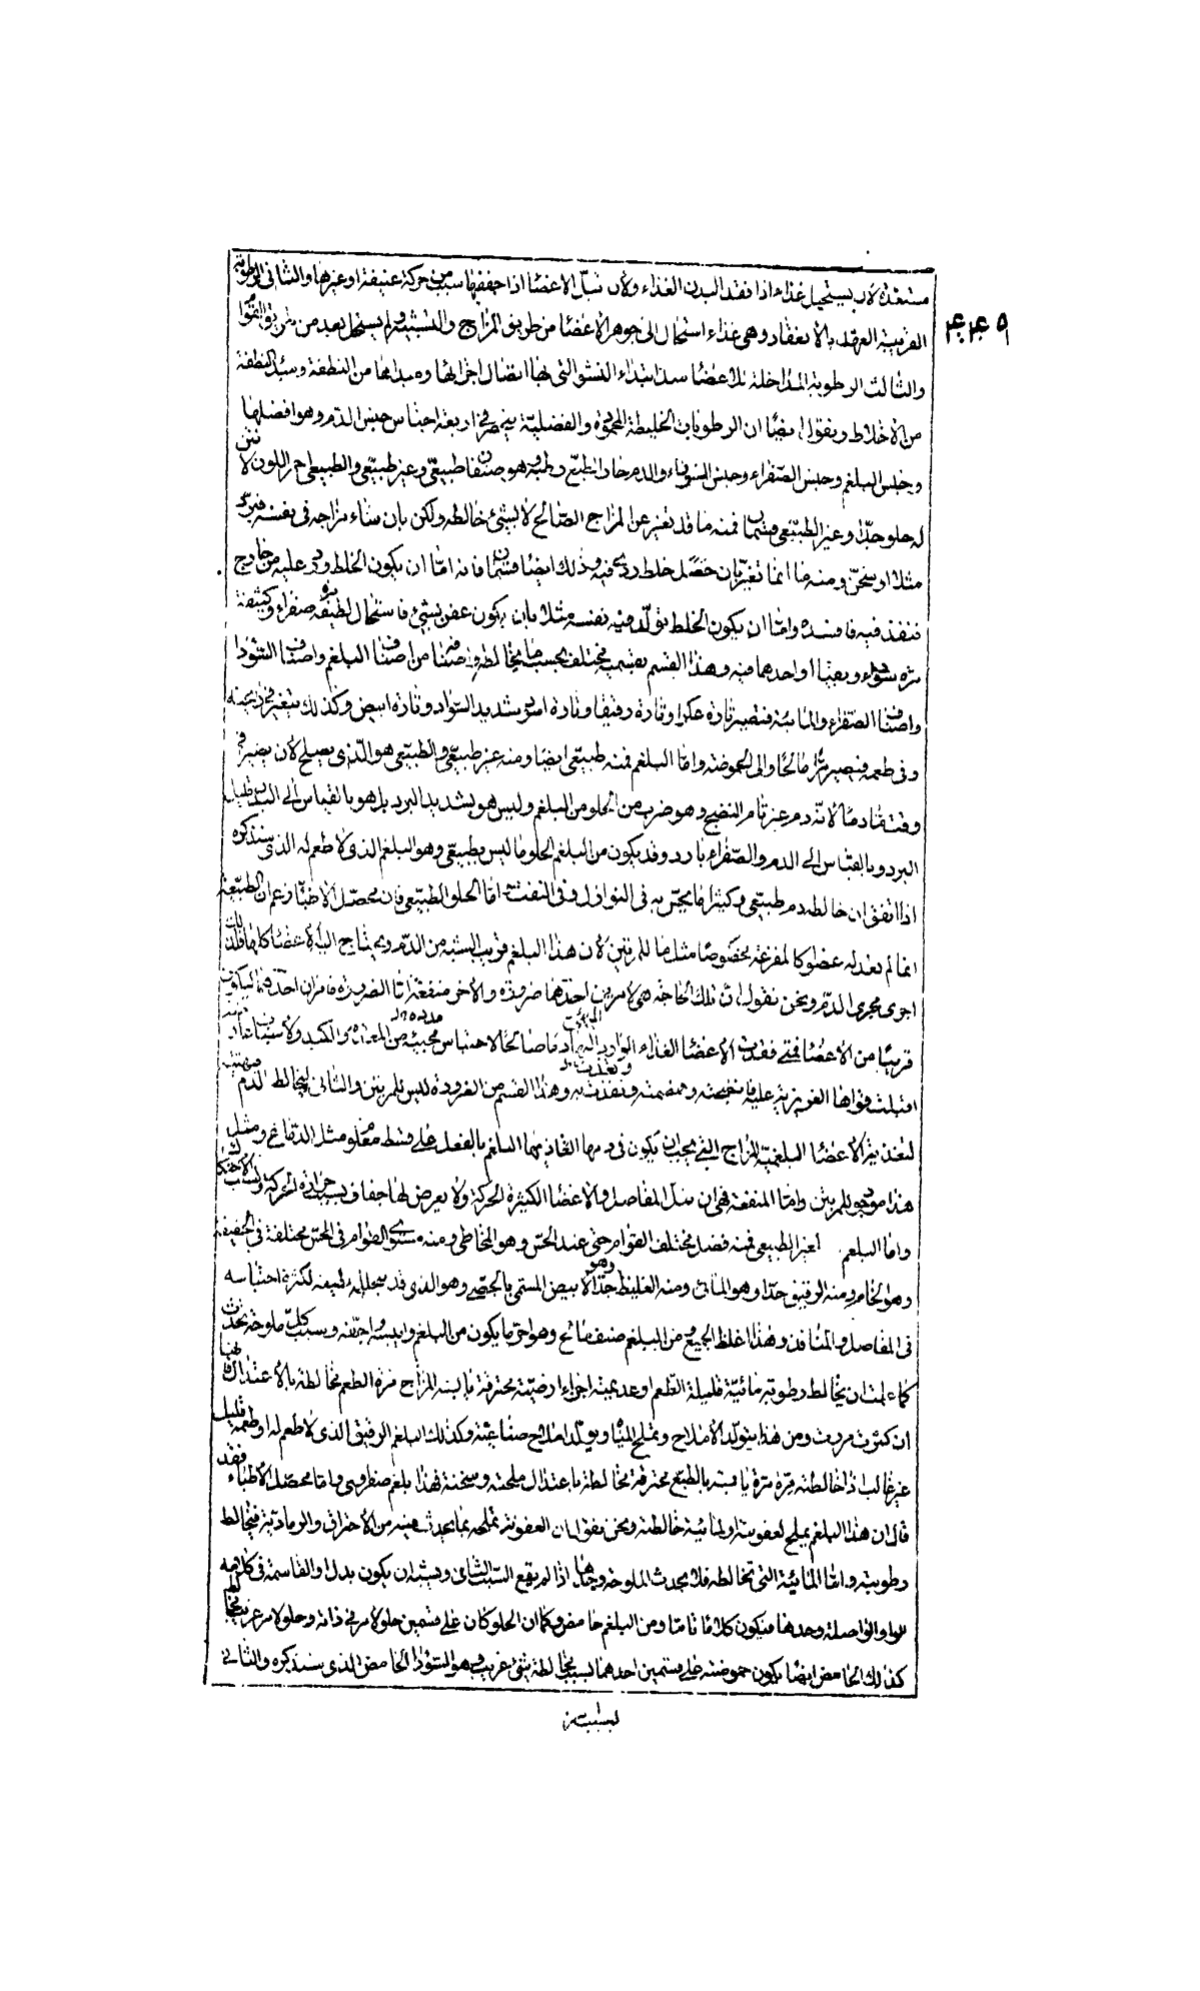 مستعدة لان يستحيل غذاء اذا فقد البدن الغذاء ولان تبلّ الاعضا اذا جففها سبب من حركة عنيفة او غيرها والثانى الرطوبة
القريبة العهد بالانعقاد وهى غذاء استحال الى جوهر الاعضا من طريق المزاج والتشبيه ولم يستحل بعد من طريق القوام
والثالث الرطوبة المداخلة للاعضا منذ ابتداء النشو التى بها اتصال اجزائها ومبداها من النطفة ومبدا النطفة
من الاخلاط ونقول ايضا ان الرطوبات الخلطية المحمودة والفضلية ينحصر فى اربعة اجناس جنس الدم وهو افضلها
وجنس البلغم وجنس الصفراء وجنس السوداء والدم حار الطبع رطبه وهو صنفان طبيعى وغير طبيعى والطبيعى احمر اللون لا نتن
له حلو جدا وغير الطبيعى قسمان فمنه ما قد تغير عن المزاج الصالح لا لشئ خالطه ولكن بان ساء مزاجه فى نفسه فبرد
مثلا او سخن ومنه ما انما تغير بان حصل خلط ردى فيه وذلك ايضا قسمان فانه اما ان يكون الخلط ورد عليه من خارج
فنفذ فيه فافسده واما ان يكون الخلط تولد فيه نفسه مثلا بان يكون عفن بشئ فاستحال لطيفه صفراء وكثيفه
مرة سوداء وبقيا او احدهما فيه وهذا القسم بقسميه مختلف بحسب ما يخالطه واصنافه من اصناف البلغم واصناف السودا
واصناف الصفراء والمائية فتصير تارة عكرا وتارة رقيقا وتارة اسود شديد السواد وتارة ابيض وكذلك يتغير فى رايحته
وفى طعمه فيصير مرا ومالحا والى الحموضة واما البلغم فمنه طبيعى ايضا ومنه غير طبيعى والطبيعى هو الذى يصلح لان يصير فى
وقت ما دما لانه دم غير تام النضج وهو ضرب من الحلو من البلغم وليس هو بشديد البرد بل هو بالقياس الى البدن قليل
البرد وبالقياس الى الدم والصفراء بارد وقد يكون من البلغم الحلو ما ليس بطبيعى وهو البلغم الذى لا طعم له الذى سنذكره
اذا اتفق ان خالطه دم طبيعى وكثيرا ما يحس به فى النوازل وفى النفث اما الحلو الطبيعى فان محصل الاطبا زعم ان الطبيعة
انما لم تعد له عضوا كالمفرغة مخصوصا مثل ما للمرتين لان هذا البلغم قريب الشبه من الدم ويحتاج اليه الاعضا كلها فلذلك
اجرى مجرى الدم ونحن نقول ان تلك الحاجة هى لامرين احدهما ضرورة والاخر منفعة اما الضرورة فامران احدهما ليكون
قريبا من الاعضا فمتى فقدت الاعضا الغذاء الوارد اليها لاحتباس من المعدة والكبد ولاسباب عارضة
اقبلت قواها الغريزية عليه فانضجته وهضمته وتغذت به وهذا القسم من الضرورة ليس للمرتين والثانى ليخالط الدم
لتغذية الاعضا البلغمية المزاج التى يجب ان يكون فى دمها الغاذيها البلغم بالفعل على قسط معلوم مثل الدماغ ومثل
هذا موجود للمرتين واما المنفعة فهى ان تبل المفاصل والاعضا الكثيرة الحركة ولا يعرض لها جفاف بسبب حرارة الحركة وبسبب الاحتكاك
واما البلغم الغير الطبيعى فمنه فضل مختلف القوام حتى عند الحس وهو المخاطى ومنه مستوى القوام فى الحس مختلفه فى الحقيقة
وهو الخام ومنه الرقيق جدا وهو المائى ومنه الغليظ جدا وهو الابيض المسمى بالجصى وهو الذى قد تحلل لطيفه لكثرة احتباسه
فى المفاصل والمنافذ وهذا اغلظ الجميع من البلغم صنف مالح وهو احر ما يكون من البلغم وايبسه واجفه وسبب كل ملوحة تحدث
كما علمت ان يخالط رطوبة مائية قليلة الطعم او عديمته اجزاء ارضية محترقة يابسة المزاج مرة الطعم مخالطة باعتدال فانها
ان كثرت مررت ومن هذا يتولد الاملاح وتملح المياه ويولد املاح صناعية وكذلك البلغم الرقيق الذى لا طعم له او طعمه قليل
غير غالب اذا خالطته مرة مرة يابسة بالطبع محترقة مخالطة باعتدال ملحته وسخنته فهذا بلغم صفراوى واما محصل الاطباء فقد
قال ان هذا البلغم يملح لعفونته او لمائية خالطته ونحن نقول ان العفونة تملحه بما يحدث فيه من الاحتراق والرمادية فيخالط
رطوبته واما المائية التى تخالطه فلا يحدث الملوحة وحدها اذا لم يقع السبب الثانى ويشبه ان يكون بدل او القاسمة فى كلامه
الواو الواصلة وحدها فيكون كلاما تاما ومن البلغم حامض وكما ان الحلو كان على قسمين حلو لامر فى ذاته وحلو لامر غريب مخالط
كذلك الحامض ايضا يكون حموضته على قسمين احدهما بسبب مخالطة شئ غريب وهو السودا الحامض الذى سنذكره والثانى
بسبب